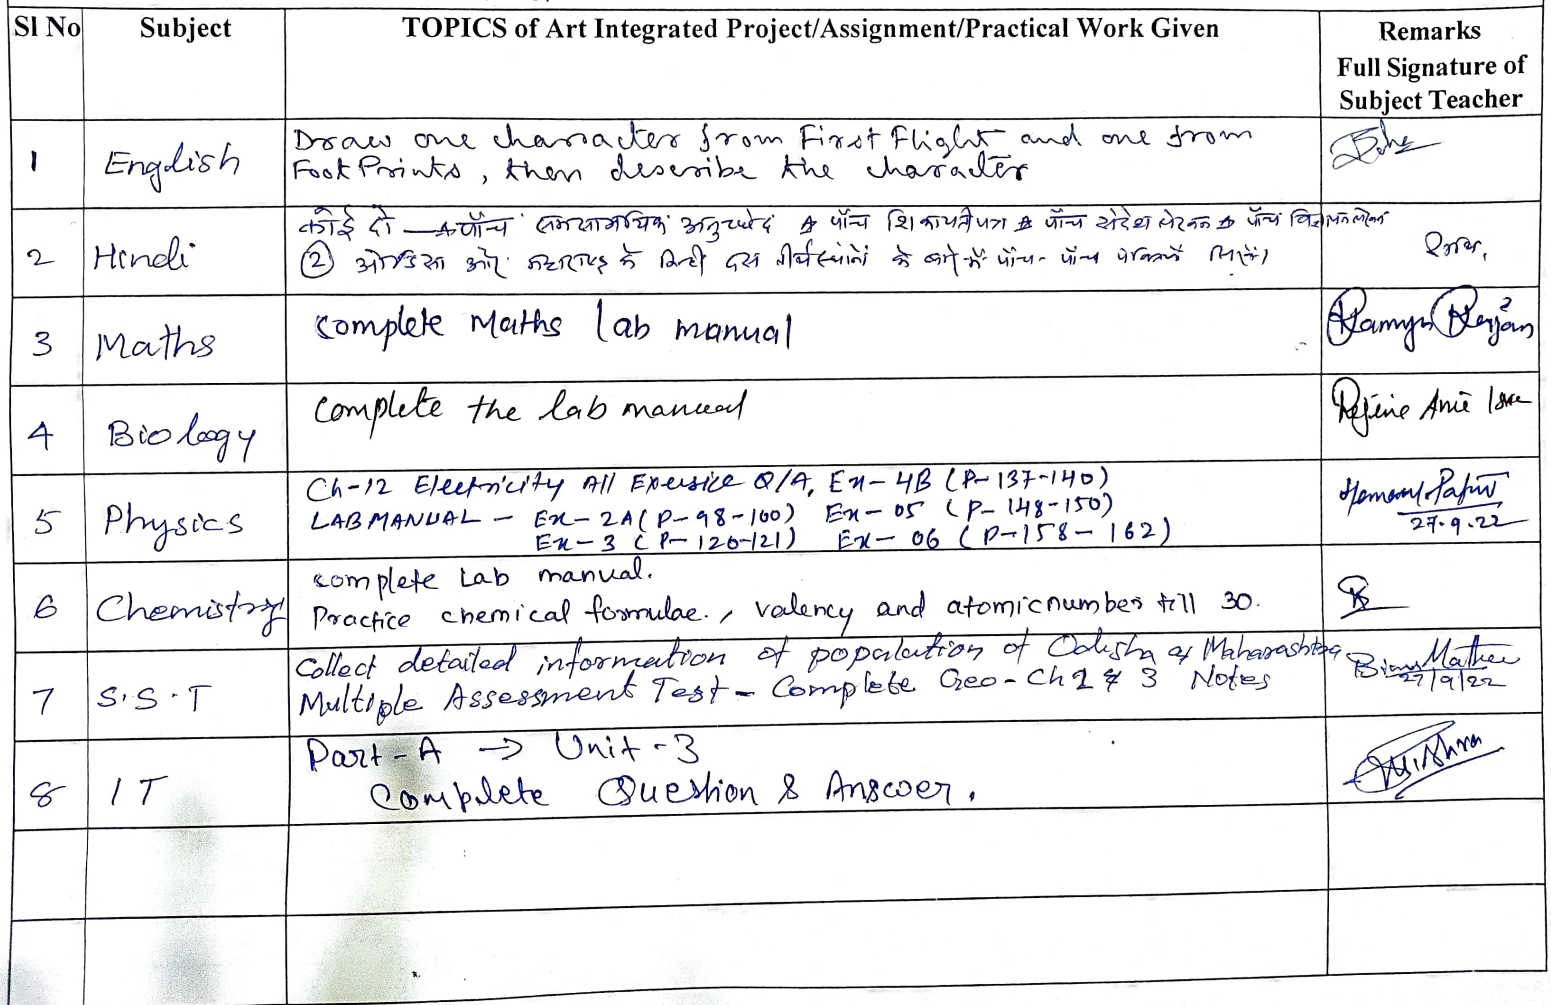 Sl No Subject TOPICS of Art Integrated Project/Assignment/Practical Work Given Remarks
Full Signature of
Subject Teacher
1 English Draw one character from First Flight and one from
Foot Prints, then describe the character
2 Hindi कोई दो पाँच समसामयिक अनुच्छेद पाँच शिकायती पत्र पाँच संदेश लेखन पाँच विज्ञापन लेखन
② ओडिसा और महाराष्ट्र के किन्ही दस तीर्थस्थानों के बारे में पाँच-पाँच पंक्तियाँ लिखें।
3 Maths Complete Maths lab manual
4 Biology Complete the lab manual
5 Physics Ch-12 Electricity All Exersice Q/A, Ex-4B (P-137-140)
LAB MANUAL - Ex-2A (P-98-100) Ex-05 (P-148-150)
Ex-3 (P-120-121) Ex-06 (P-158-162)
27.9.22
6 Chemistry complete Lab manual.
Practice chemical formulae., valency and atomic number till 30.
7 S.S.T Collect detailed information of population of Odisha & Maharashtra
Multiple Assessment Test - Complete Geo-Ch 2 & 3 Notes
Mathew
27/9/22
8 IT Part-A → Unit-3
Complete Question & Answer.
Mishra